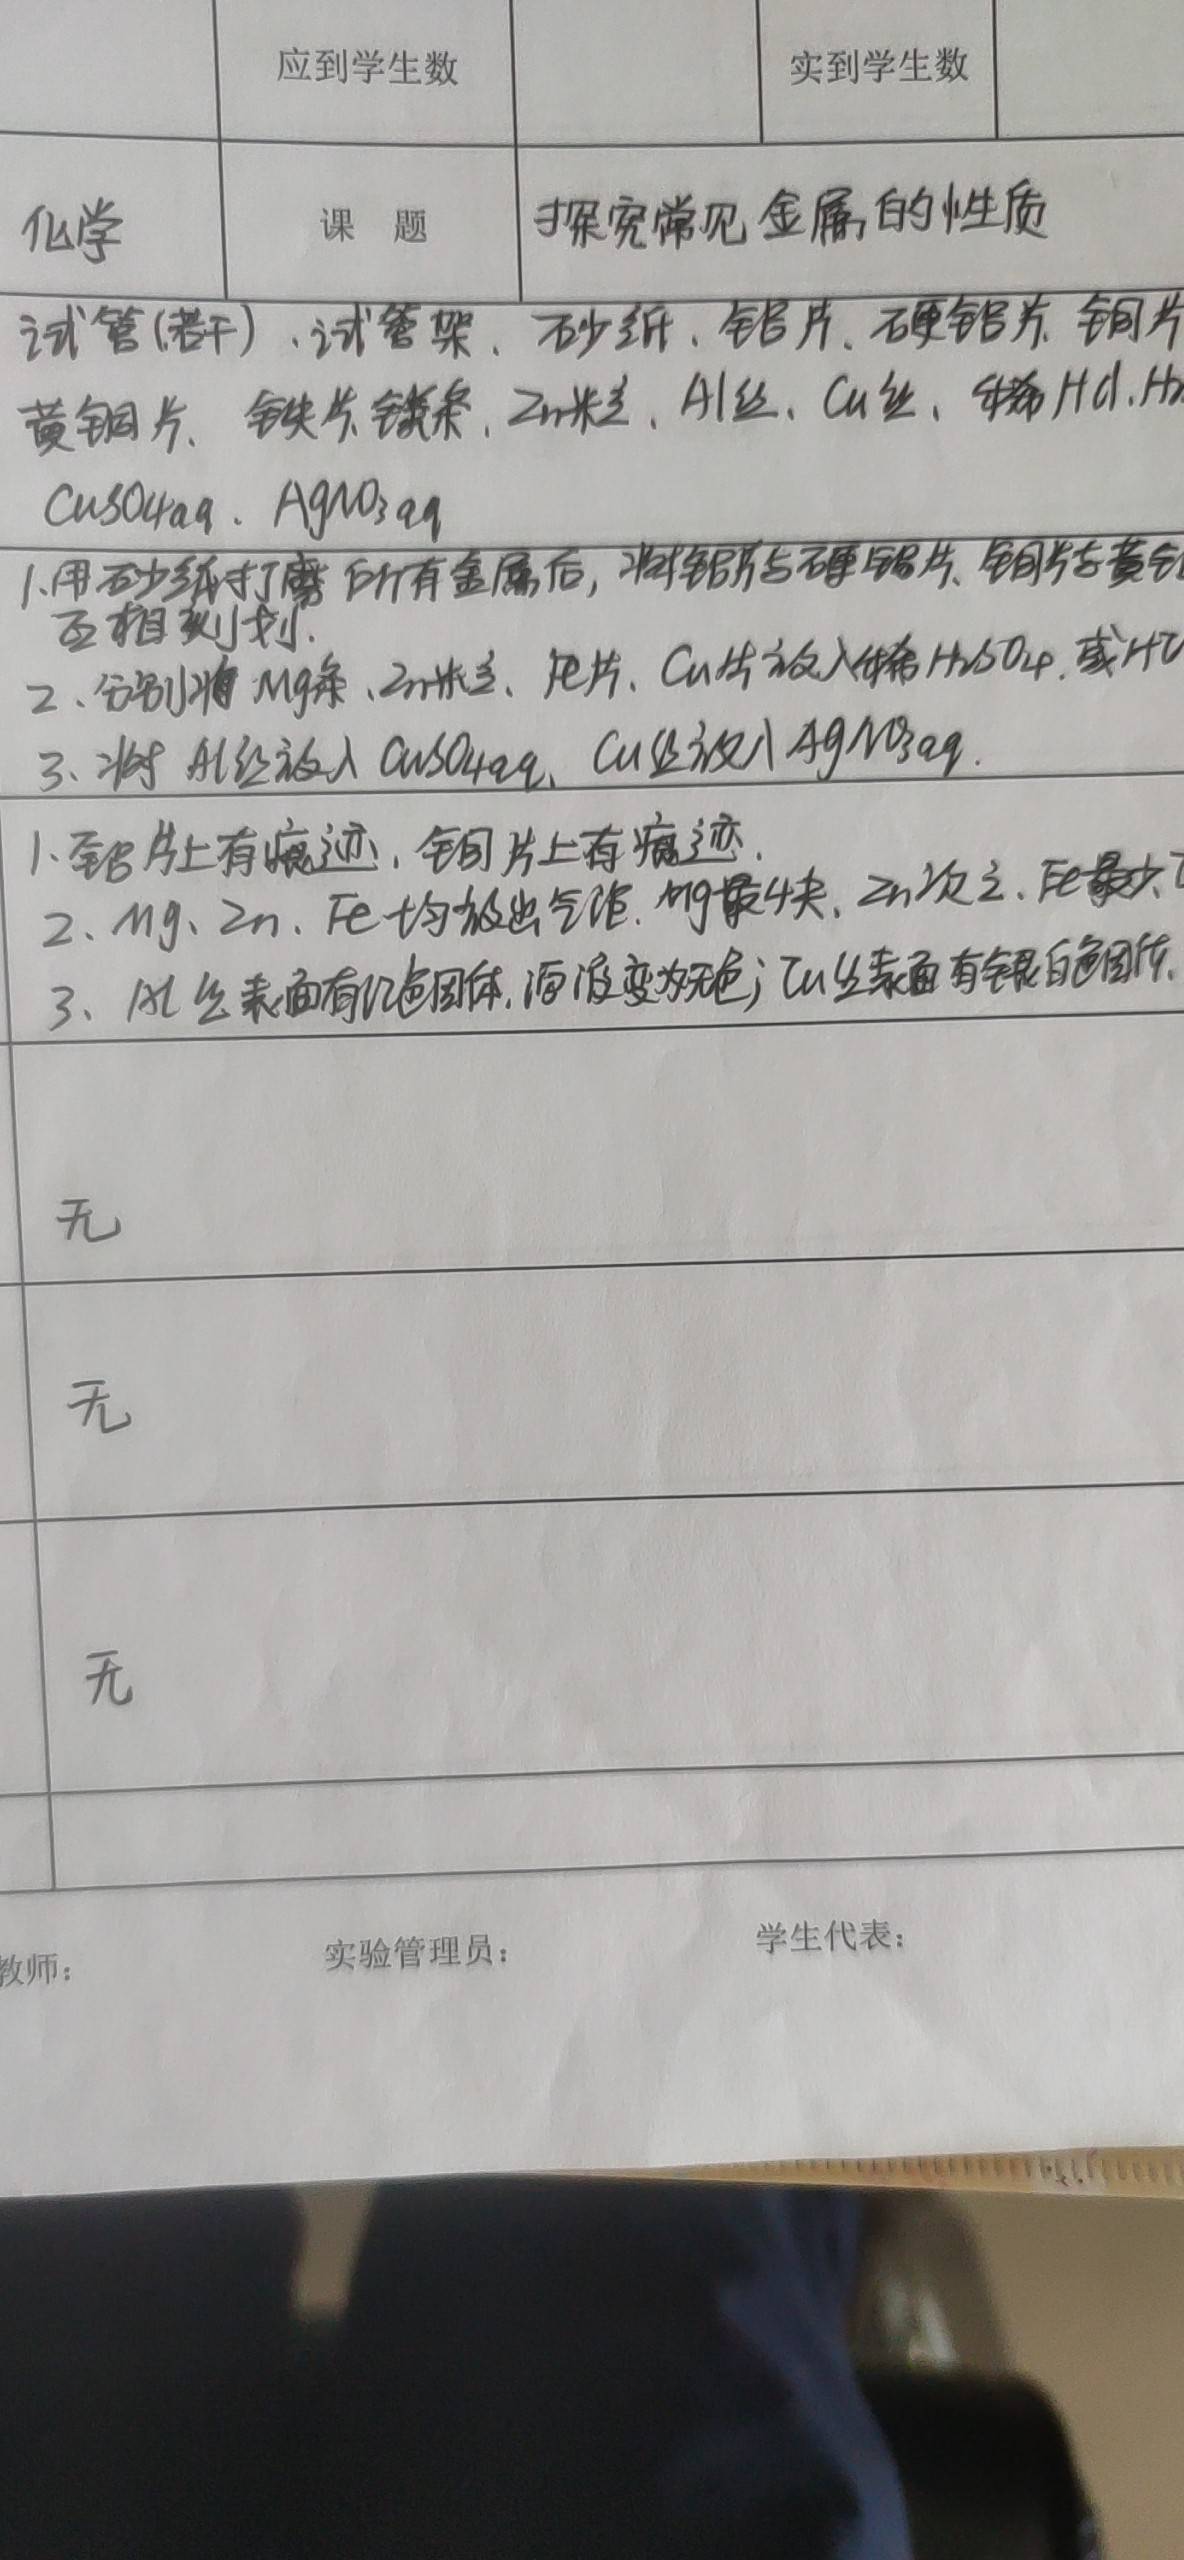 应到学生数 实到学生数
化学 课 题 探究常见金属的性质
试管(若干)、试管架、砂纸、铝片、硬铝片、铜片
黄铜片、铁片、镁条、Zn粒、Al丝、Cu丝、稀HCl、H₂
CuSO4aq、AgNO3aq
1.用砂纸打磨所有金属后,将铝片与硬铝片、铜片与黄
互相刻划.
2、分别将Mg条、Zn粒、Fe片、Cu片放入稀H₂SO4.或HC
3、将Al丝放入CuSO4aq、Cu丝放入AgNO3aq.
1、铝片上有痕迹,铜片上有痕迹.
2、Mg、Zn、Fe均放出气泡.Mg最快、Zn次之、Fe最少、
3、Al丝表面有红色固体,溶液变为无色;Cu丝表面有银白色固体,
无
无
无
教师: 实验管理员: 学生代表: